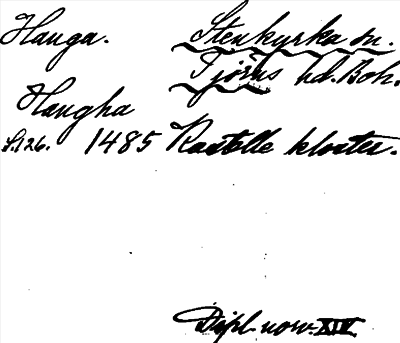 Hauga. Stenkyrka sn.
Tjörns hd. Boh.
Haugha
S.126. 1485 Kastelle kloster.
Dipl. norv. XIV.